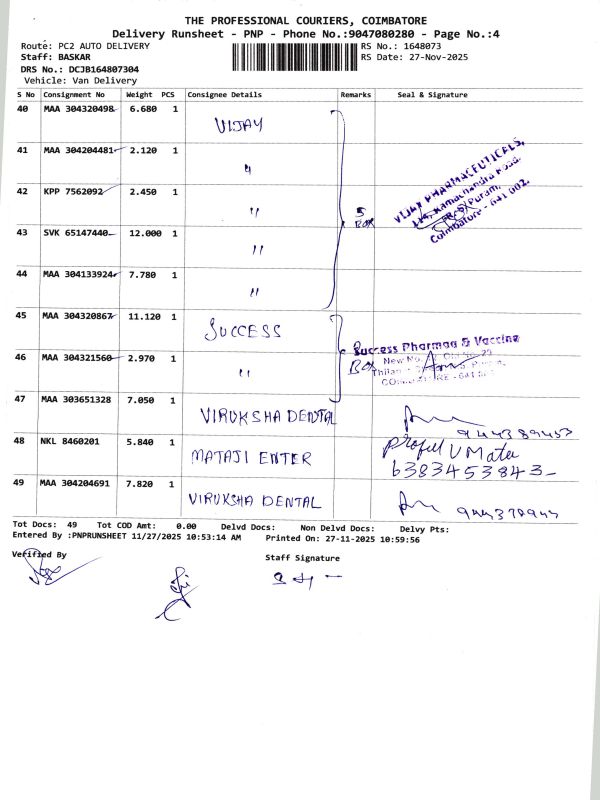 THE PROFESSIONAL COURIERS, COIMBATORE
Delivery Runsheet - PNP - Phone No.:9047080280 - Page No.:4
Route: PC2 AUTO DELIVERY RS No.: 1648073
Staff: BASKAR RS Date: 27-Nov-2025
DRS No.: DCJB164807304
Vehicle: Van Delivery
S No Consignment No Weight PCS Consignee Details Remarks Seal & Signature
40 MAA 304320498 6.680 1 VIJAY
41 MAA 304204481 2.120 1 "
42 KPP 7562092 2.450 1 "
43 SVK 65147440 12.000 1 "
44 MAA 304133924 7.780 1 "
5 BOX
VIJAY PHARMACEUTICALS,
Ramachandra Road,
Puram,
Coimbatore - 641 002.
45 MAA 304320867 11.120 1 SUCCESS
46 MAA 304321560 2.970 1 "
BOX
Success Pharmaa & Vaccine
New No.
47 MAA 303651328 7.050 1 VIRUKSHA DENTAL
48 NKL 8460201 5.840 1 MATAJI ENTER
6383453843
49 MAA 304204691 7.820 1 VIRUKSHA DENTAL
Tot Docs: 49 Tot COD Amt: 0.00 Delvd Docs: Non Delvd Docs: Delvy Pts:
Entered By :PNPRUNSHEET 11/27/2025 10:53:14 AM Printed On: 27-11-2025 10:59:56
Verified By Staff Signature